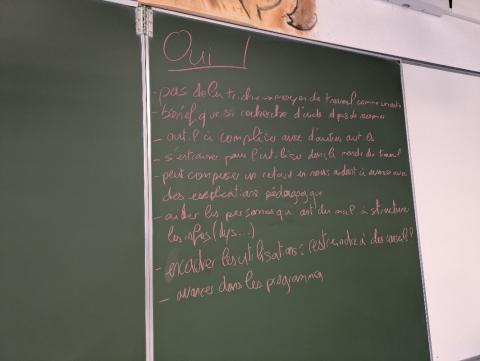 Oui !
- pas de la triche → moyen de travail comme un autre
- bénéf que si recherche d'aide et pas de réponses
- outil à compléter avec d'autres outils
- s'entrainer pour l'utiliser dans le monde du travail
- peut compenser un retard en nous aidant à avancer avec
des explications pédagogique
- aider les personnes qui ont du mal à structurer
les infos (dys...)
- encadrer les utilisations : restreindre à des conseils ?
- avancer dans les programmes